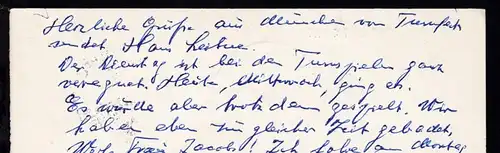 Herzliche Grüße aus München vom Turnfest
sendet Hans
Der Dienstag ist bei den Turnspielen ganz
verregnet. Heute, Mittwoch, ging es.
Es wurde aber trotzdem gespielt. Wir
haben eben zur gleichen Zeit gebadet,
Werte Frau Jacobs! Ich habe am Montag